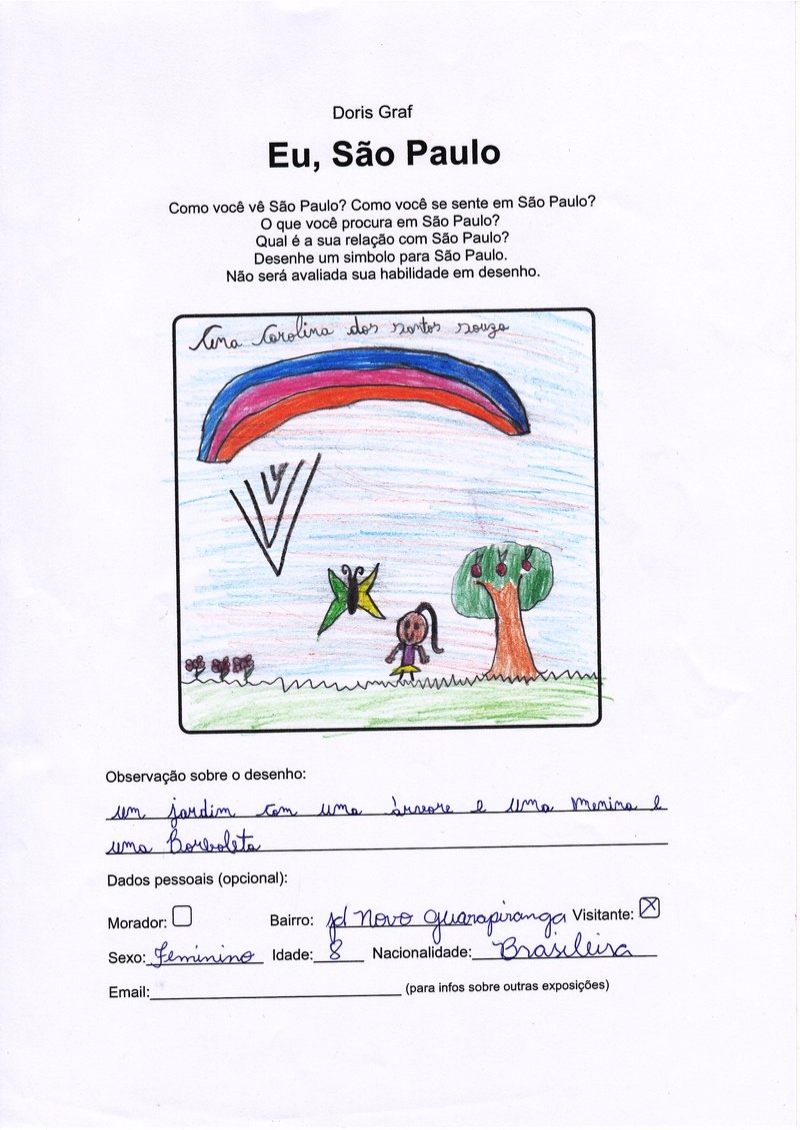 Doris Graf
Eu, São Paulo
Como você vê São Paulo? Como você se sente em São Paulo?
O que você procura em São Paulo?
Qual é a sua relação com São Paulo?
Desenhe um simbolo para São Paulo.
Não será avaliada sua habilidade em desenho.
Ana Carolina dos santos souza
Observação sobre o desenho:
um jardim com uma árvore e uma menina e
uma Borboleta
Dados pessoais (opcional):
Morador: Bairro: jd Novo Guarapiranga Visitante: X
Sexo: Feminino Idade: 8 Nacionalidade: Brasileira
Email: (para infos sobre outras exposições)